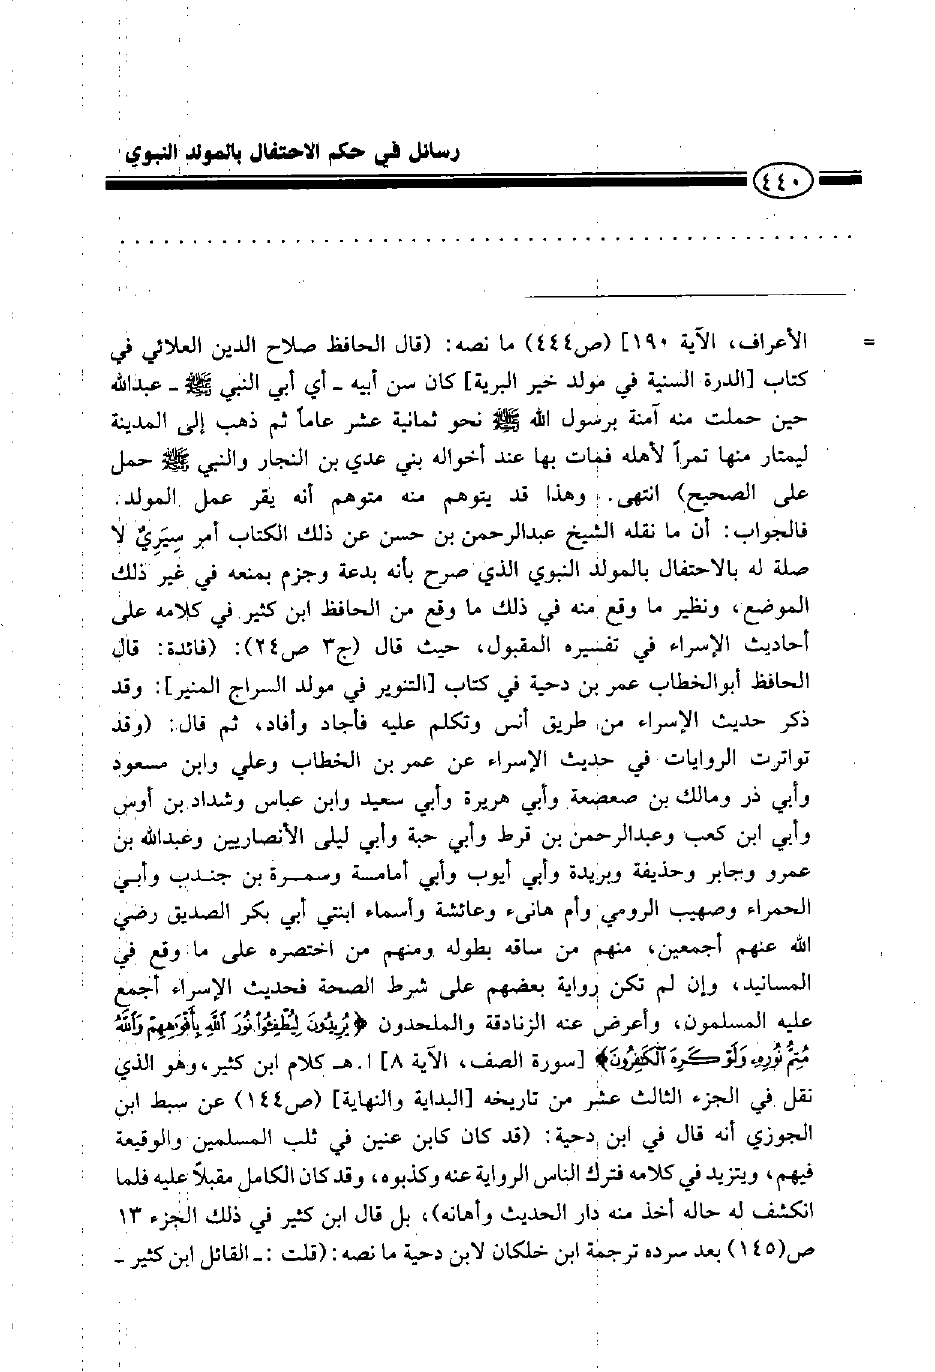 رسائل في حكم الاحتفال بالمولد النبوي
٤٤٠
= الأعراف، الآية ١٩٠] (ص٤٤٤) ما نصه: (قال الحافظ صلاح الدين العلائي في
كتاب [الدرة السنية في مولد خير البرية] كان سن أبيه ـ أي أبي النبي ﷺ ـ عبدالله
حين حملت منه آمنة برسول الله ﷺ نحو ثمانية عشر عاماً ثم ذهب إلى المدينة
ليمتار منها تمراً لأهله فمات بها عند أخواله بني عدي بن النجار والنبي ﷺ حمل
على الصحيح) انتهى. وهذا قد يتوهم منه متوهم أنه يقر عمل المولد.
فالجواب: أن ما نقله الشيخ عبدالرحمن بن حسن عن ذلك الكتاب أمر سِيَرِيٌ لا
صلة له بالاحتفال بالمولد النبوي الذي صرح بأنه بدعة وجزم بمنعه في غير ذلك
الموضع، ونظير ما وقع منه في ذلك ما وقع من الحافظ ابن كثير في كلامه على
أحاديث الإسراء في تفسيره المقبول، حيث قال (ج٣ ص٢٤): (فائدة: قال
الحافظ أبوالخطاب عمر بن دحية في كتاب [التنوير في مولد السراج المنير]: وقد
ذكر حديث الإسراء من طريق أنس وتكلم عليه فأجاد وأفاد، ثم قال: (وقد
تواترت الروايات في حديث الإسراء عن عمر بن الخطاب وعلي وابن مسعود
وأبي ذر ومالك بن صعصعة وأبي هريرة وأبي سعيد وابن عباس وشداد بن أوس
وأبي ابن كعب وعبدالرحمن بن قرط وأبي حبة وأبي ليلى الأنصاريين وعبدالله بن
عمرو وجابر وحذيفة وبريدة وأبي أيوب وأبي أمامة وسمرة بن جندب وأبي
الحمراء وصهيب الرومي وأم هانىء وعائشة وأسماء ابنتي أبي بكر الصديق رضي
الله عنهم أجمعين، منهم من ساقه بطوله ومنهم من اختصره على ما وقع في
المسانيد، وإن لم تكن رواية بعضهم على شرط الصحة فحديث الإسراء أجمع
عليه المسلمون، وأعرض عنه الزنادقة والملحدون ﴿يُرِيدُونَ لِيُطْفِئُوا نُورَ ٱللَّهِ بِأَفْوَٰهِهِمْ وَٱللَّهُ
مُتِمُّ نُورِهِۦ وَلَوْ كَرِهَ ٱلْكَٰفِرُونَ﴾ [سورة الصف، الآية ٨] ا.هـ كلام ابن كثير، وهو الذي
نقل في الجزء الثالث عشر من تاريخه [البداية والنهاية] (ص١٤٤) عن سبط ابن
الجوزي أنه قال في ابن دحية: (قد كان كابن عنين في ثلب المسلمين والوقيعة
فيهم، ويتزيد في كلامه فترك الناس الرواية عنه وكذبوه، وقد كان الكامل مقبلاً عليه فلما
انكشف له حاله أخذ منه دار الحديث وأهانه)، بل قال ابن كثير في ذلك الجزء ١٣
ص(١٤٥) بعد سرده ترجمة ابن خلكان لابن دحية ما نصه: (قلت :ـ القائل ابن كثير ـ